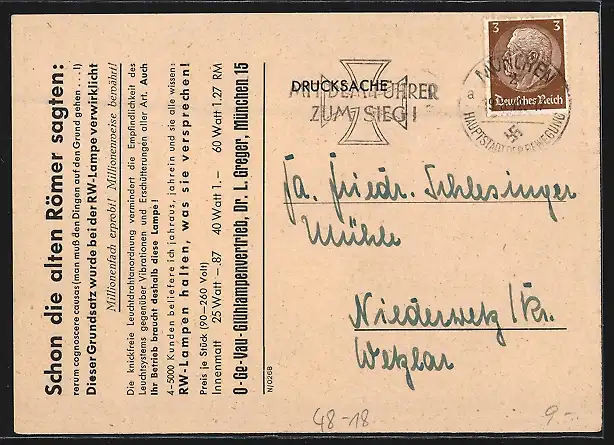 Schon die alten Römer sagten:
rerum cognoscere causas (man muß den Dingen auf den Grund gehen . . . !)
Dieser Grundsatz wurde bei der RW-Lampe verwirklicht
Millionenfach erprobt! Millionenweise bewährt!
Die knickfreie Leuchtdrahtanordnung vermindert die Empfindlichkeit des
Leuchtsystems gegenüber Vibrationen und Erschütterungen aller Art. Auch
Ihr Betrieb braucht deshalb diese Lampe!
4-5000 Kunden beliefere ich jahraus, jahrein und sie alle wissen:
RW-Lampen halten, was sie versprechen!
Preis je Stück (90-260 Volt)
Innenmatt 25 Watt -.87 40 Watt 1.- 60 Watt 1.27 RM
O-Ge-Vau-Glühlampenvertrieb, Dr. L. Greger, München 15
N/0268
DRUCKSACHE
MIT DEM FÜHRER
ZUM SIEG!
MÜNCHEN
a
HAUPTSTADT DER BEWEGUNG
3 3
Deutsches Reich
Fa. Friedr. Schlesinger
Mühle
Niederwetz / Kr.
Wetzlar
48-18
9.-